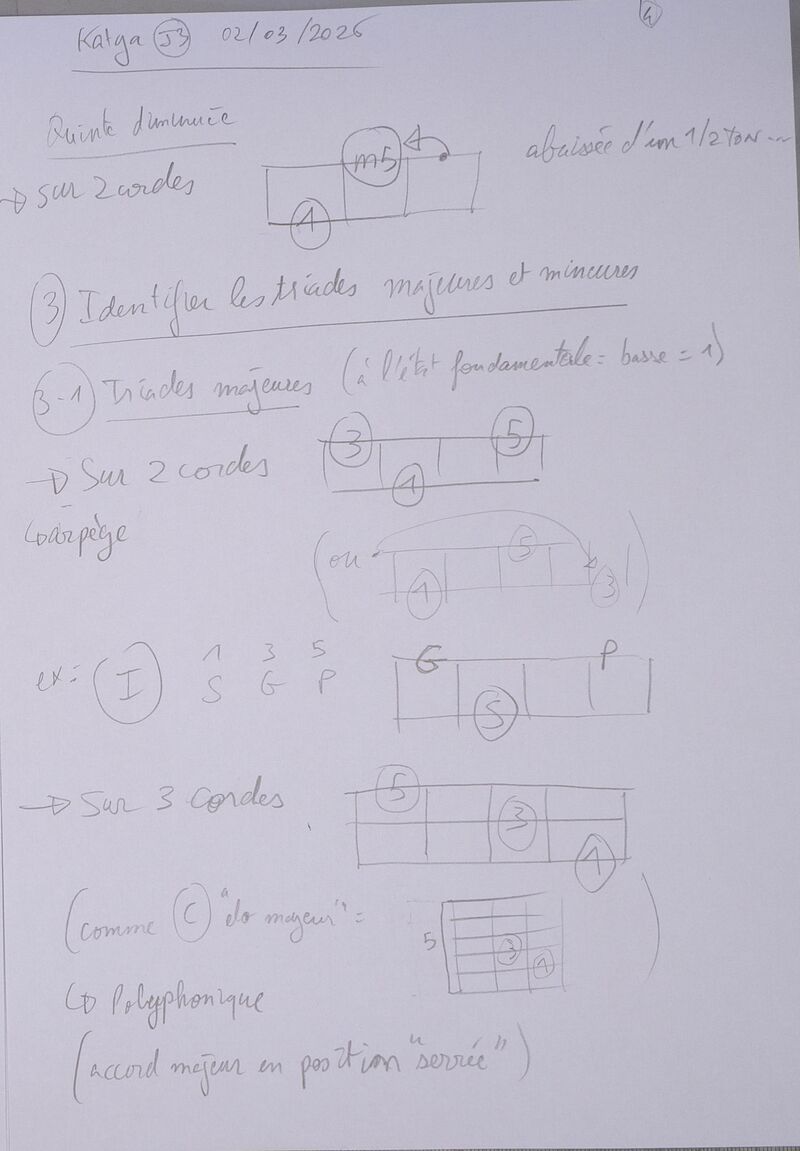 Katga J3 02/03/2026
4
Quinte diminuée
→ Sur 2 cordes
m5
1
abaissée d'un 1/2 ton...
3 Identifier les triades majeures et mineures
3-1 Triades majeures (à l'état fondamentale = basse = 1)
→ Sur 2 cordes
3 5
1
↳ arpège
(ou 5
1 3)
ex: I 1 3 5
S G P
G P
S
→ Sur 3 cordes
5
3
1
(comme C "do majeur" =
5 3
1)
↳ Polyphonique
(accord majeur en position "serrée")